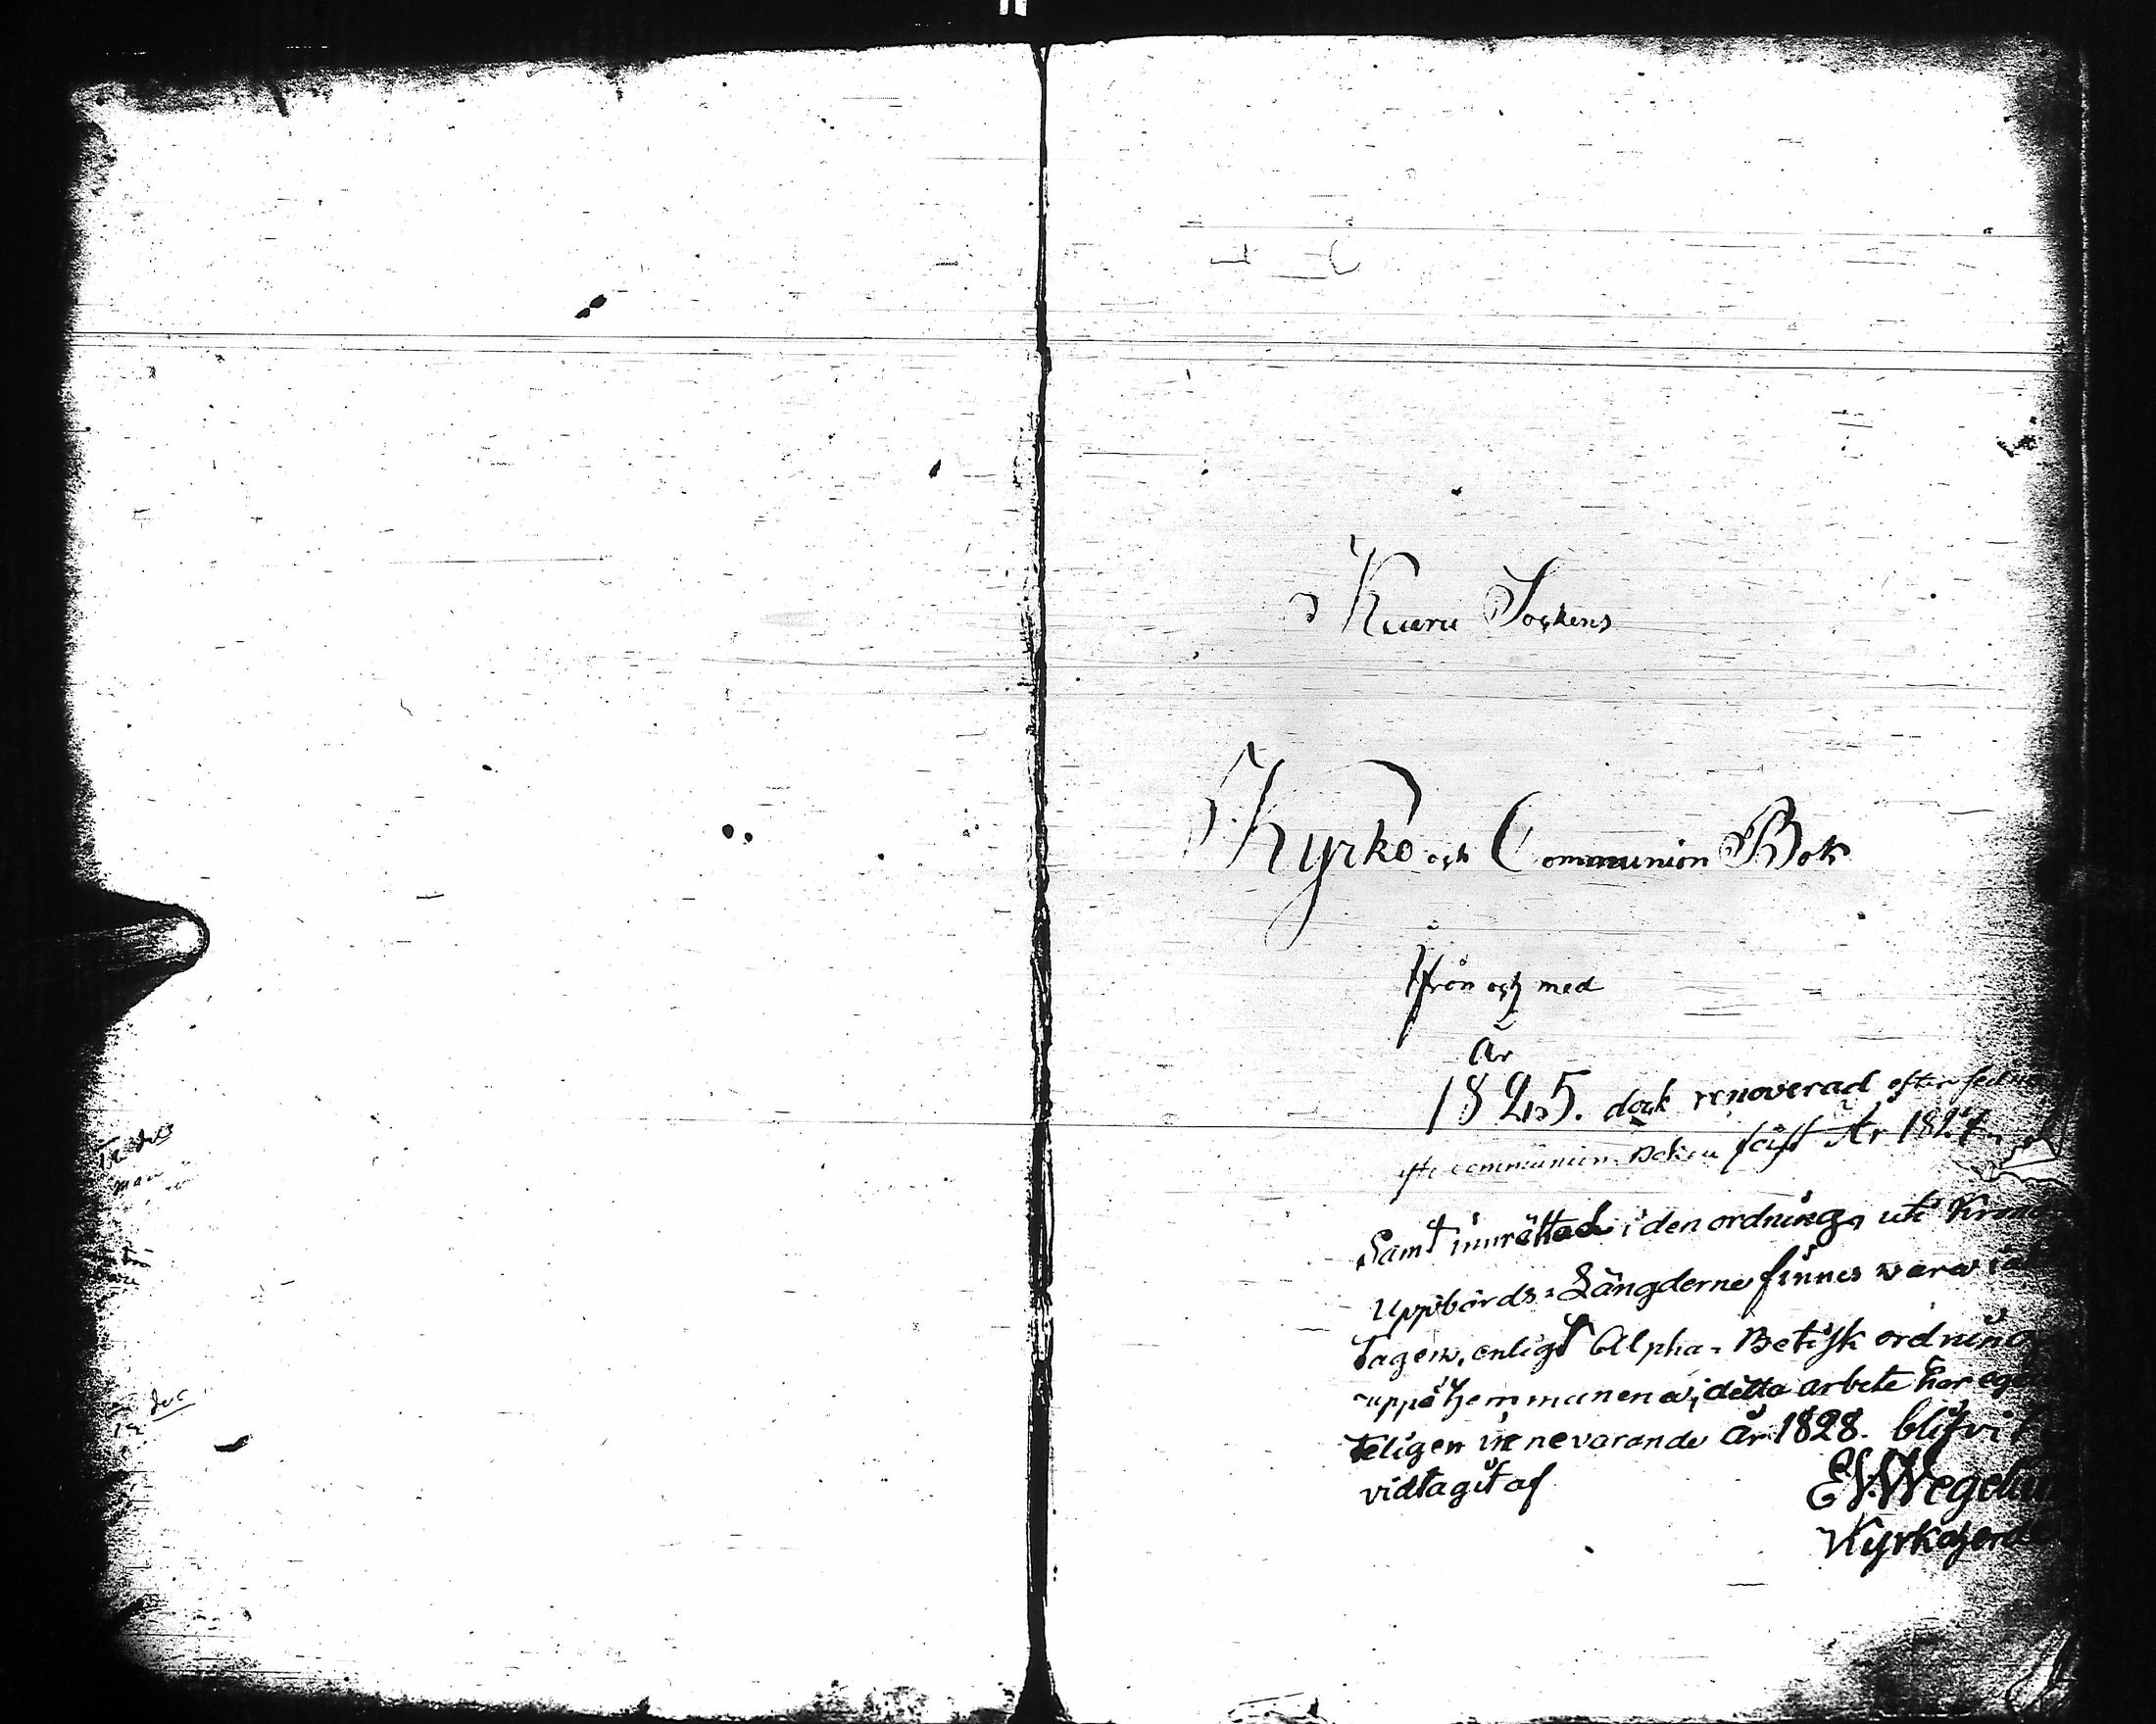 Kuuru Sockens
Kyrko och Communion Bok
Ifrån och med
År
1825. dock renoverad efter
communion Boken År 1827
Samt inrättad i den ordning, uti
Uppbörds-Längderne finnes wara
tagen, enligt Alpha-Betisk ordning
uppå Hemmanena; detta arbete har
teligen innevarande År 1828. blifvit
vidtagit af
E.W.Wegelius
Kyrkoherde